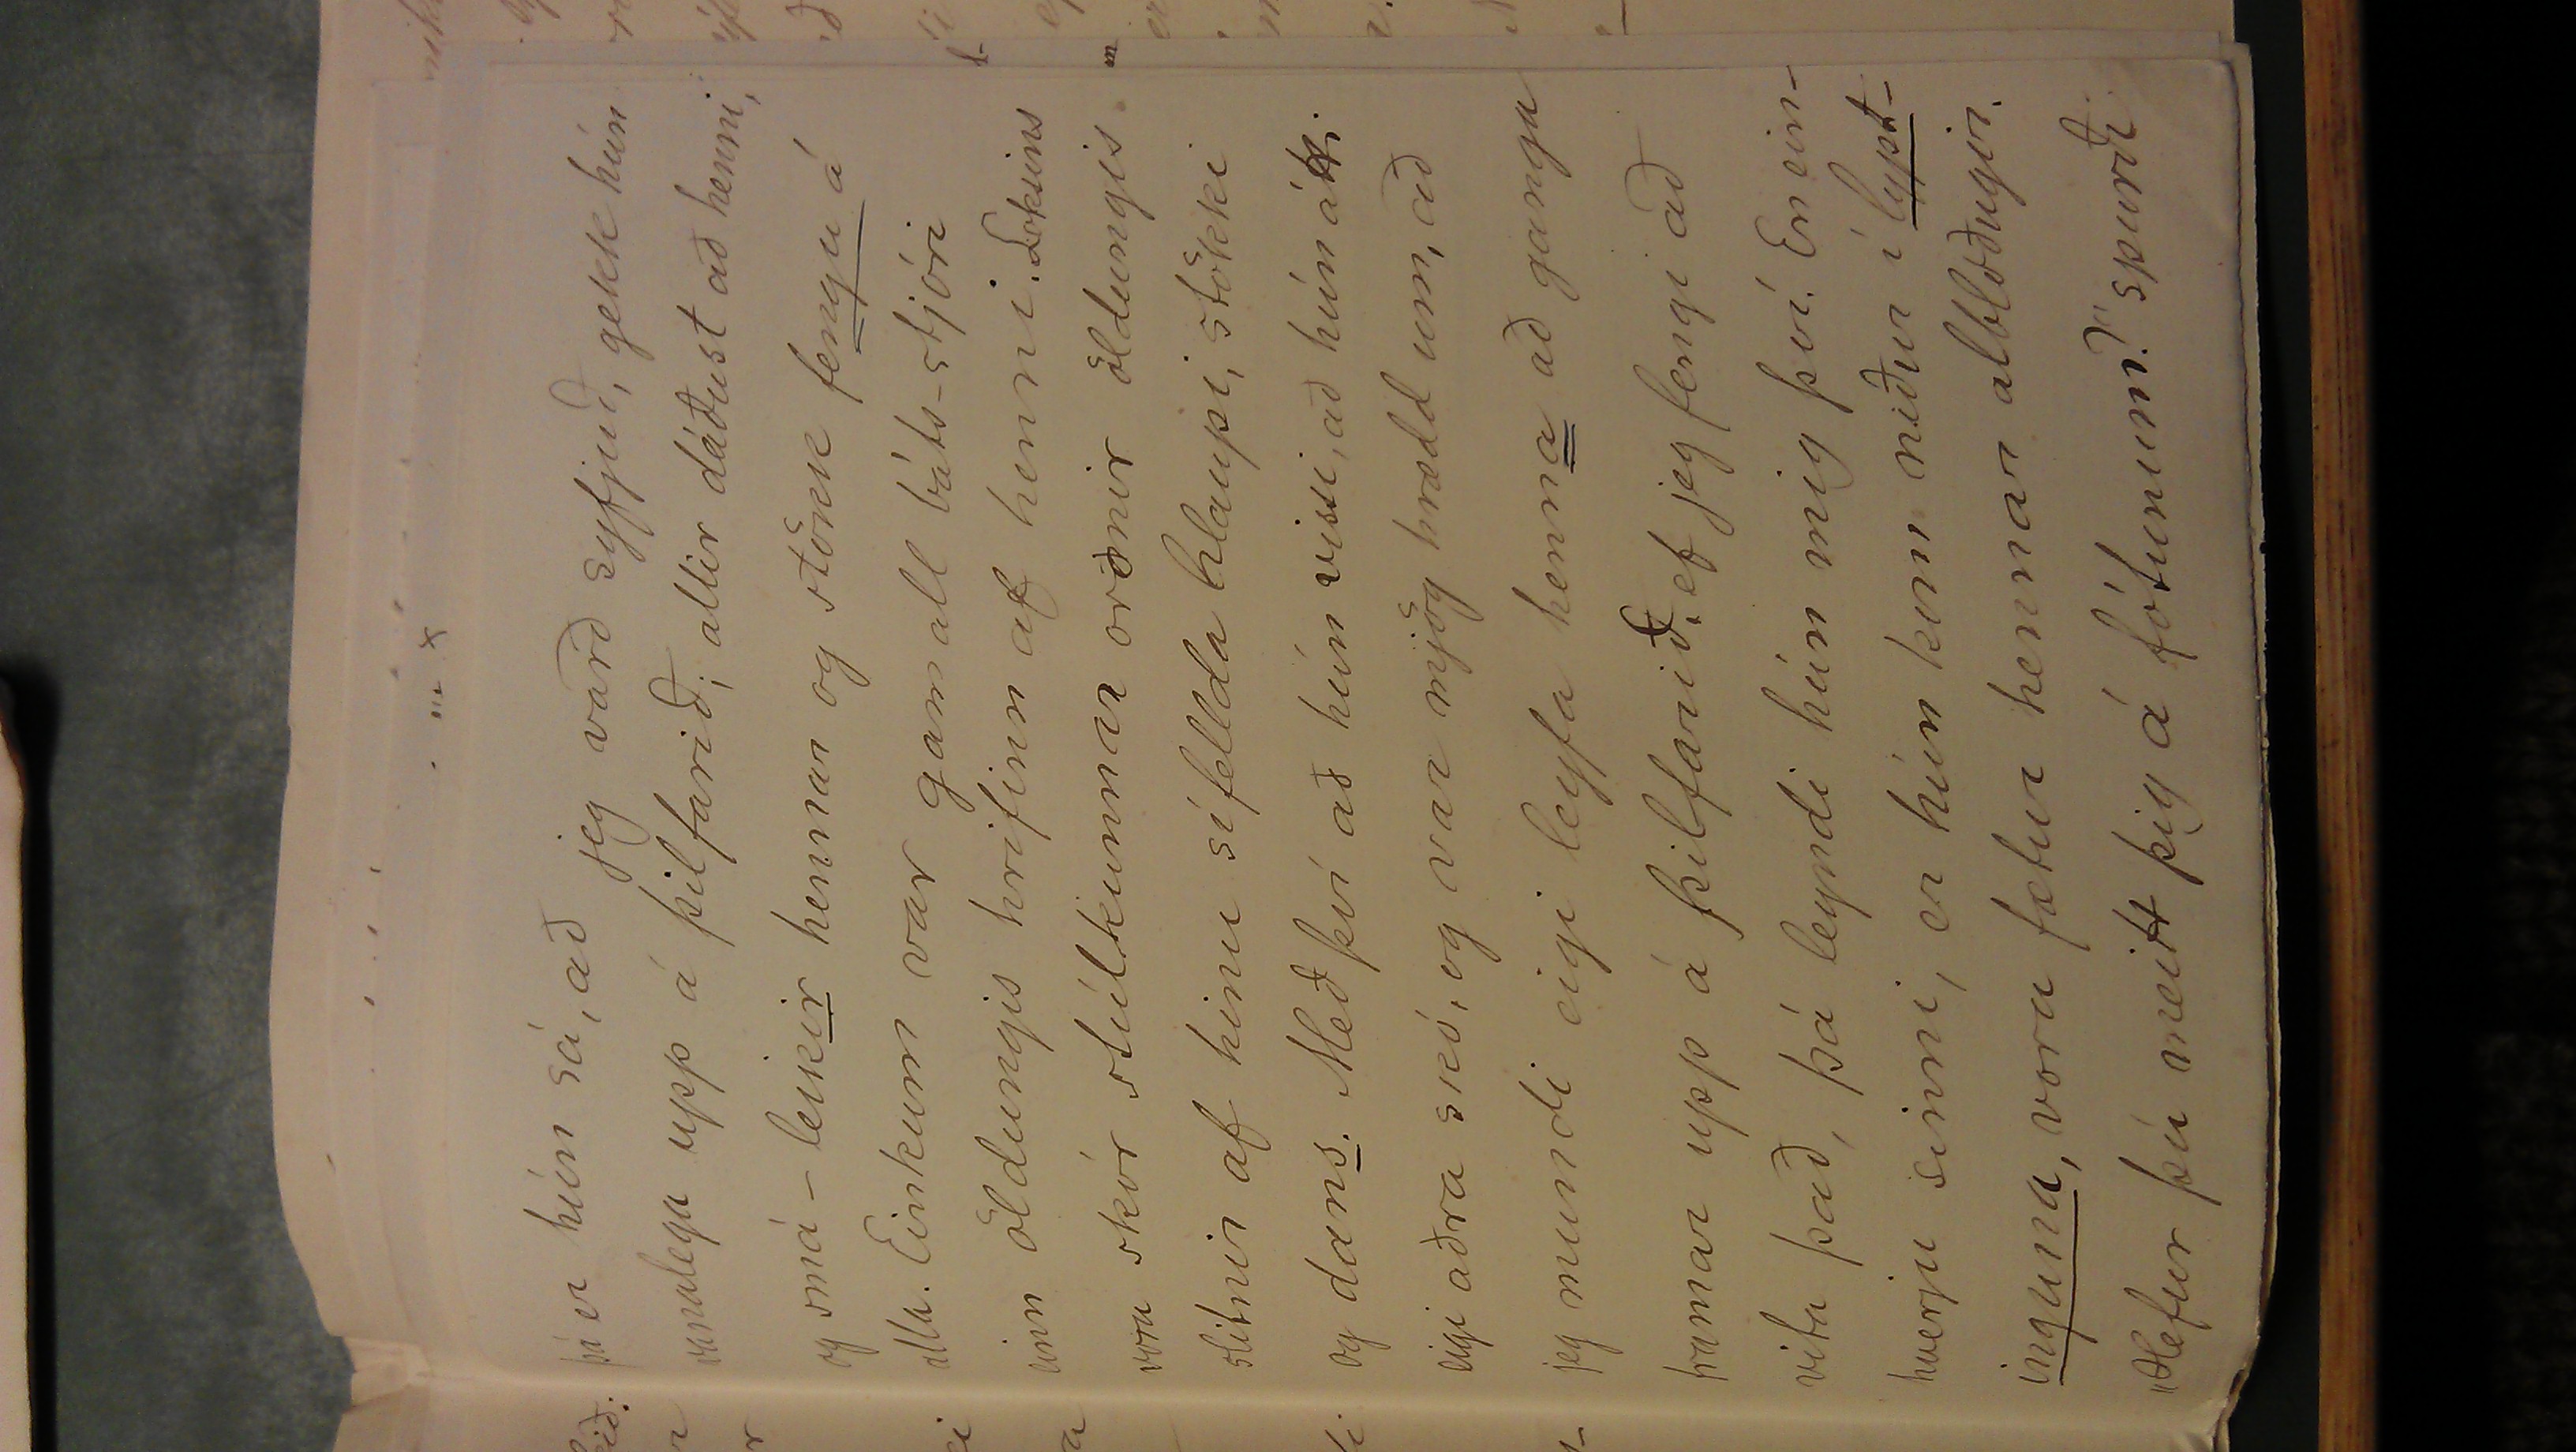 þá er hún sá, að jeg varð syfjuð, gekk hún
vanalega upp á þilfarið; allir dáðust að henni,
og smá-leikir hennar og stökk fengu á
alla. Einkum var gamall báts-stjóri
einn öldungis hrifinn af henni. Loksins
voru skór stúlkunnar orðnir öldungis
slitnir af hinu sífellda hlaupi, stökki
og dans. Með því að hún vissi, að hún átti
eigi aðra skó, og var mjög hrædd um, að
jeg mundi eigi leyfa henna að ganga
framar upp á þilfarið, ef jeg fengi að
vita það, þá leyndi hún mig því. En ein-
hverju sinni, er hún kom niður í lypt-
inguna, voru fætur hennar alblóðugir.
„Hefur þú meitt þig á fótunum?" spurði